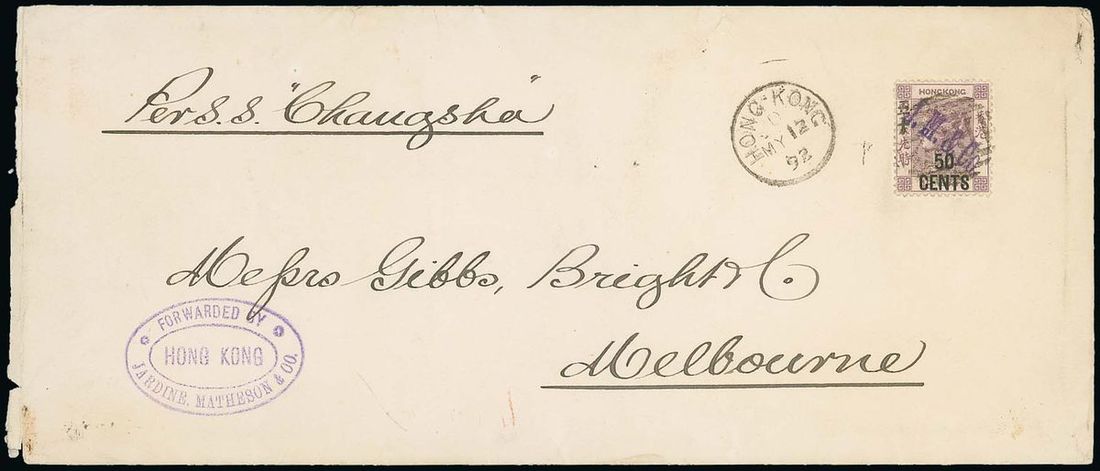 Per S.S. "Changsha"
HONG-KONG
MY 12
92
HONGKONG
J. M. & Co.
50
CENTS
Messrs Gibbs, Bright & C.
Melbourne
FORWARDED BY
HONG KONG
JARDINE, MATHESON & CO.